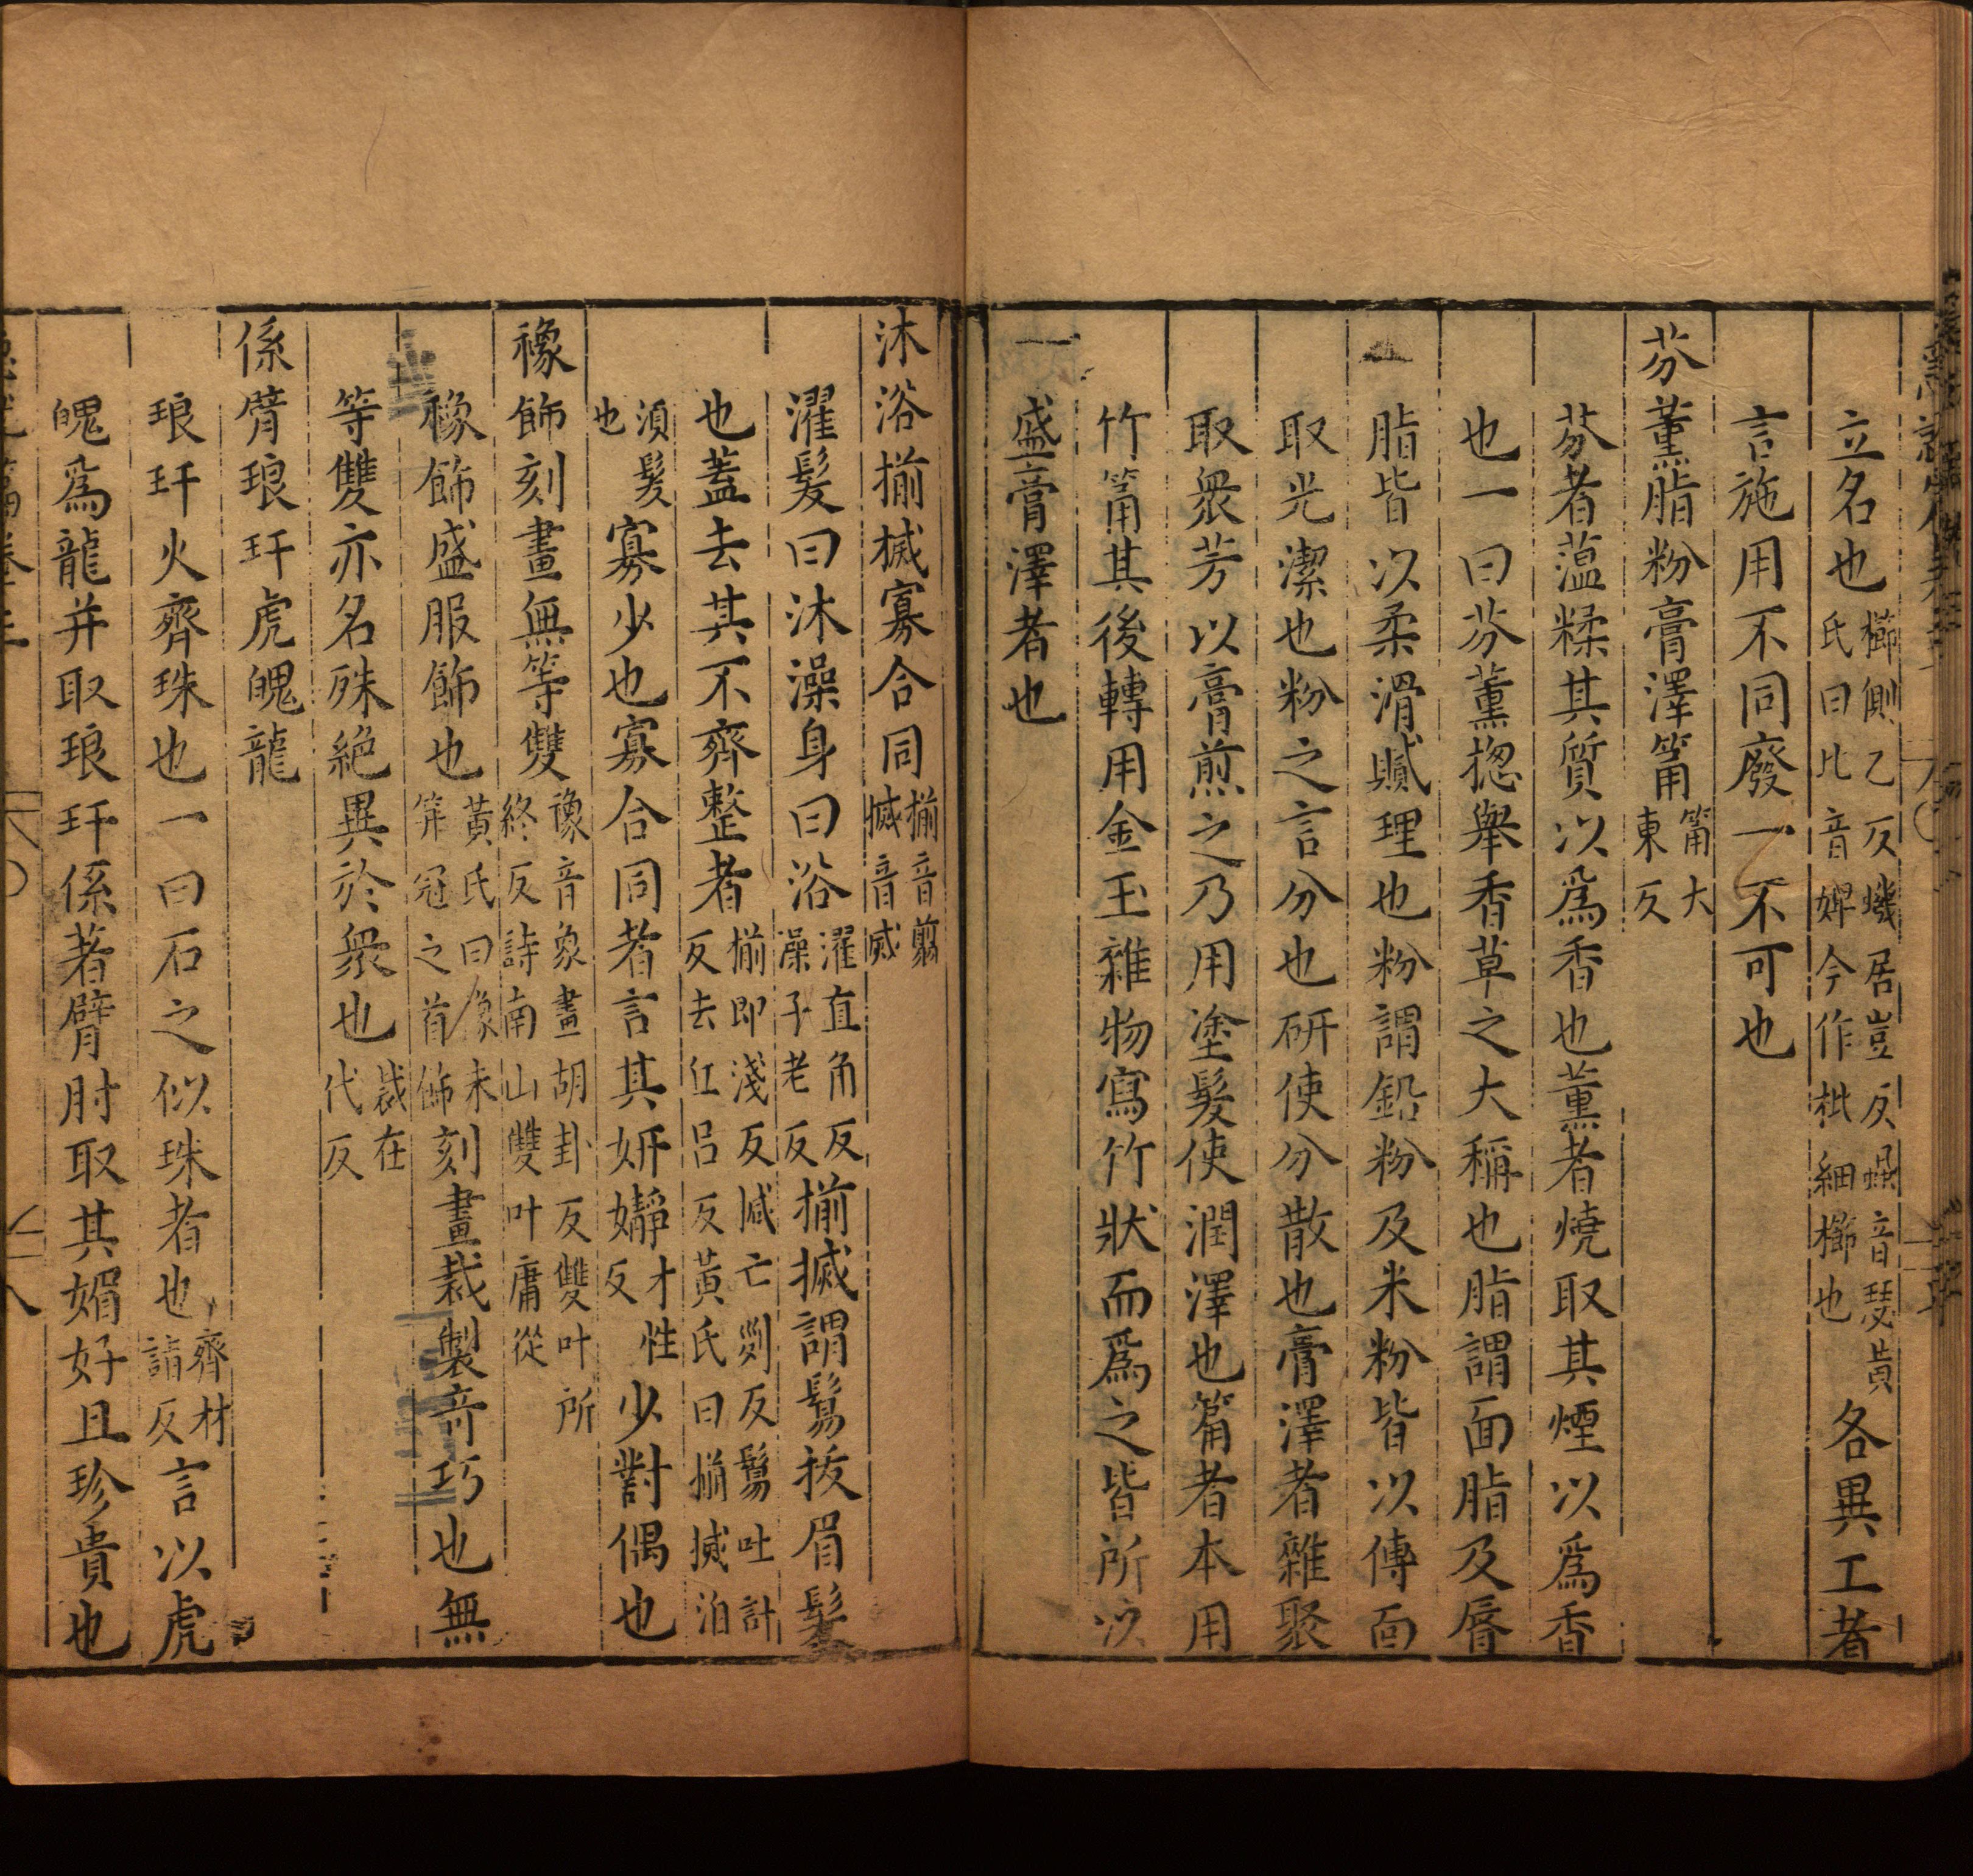 立名也櫛側乙反蟣居豈反蝨音瑟黃氏曰比音婢今作枇細櫛也各異工者
言施用不同廢一不可也
芬薰脂粉膏澤筩筩大東反
芬者薀糅其質以爲香也薰者燒取其煙以爲香
也一曰芬薰揔舉香草之大稱也脂謂面脂及脣
脂皆以柔滑膩理也粉謂鉛粉及米粉皆以傅面
取光潔也粉之言分也研使分散也膏澤者雜聚
取衆芳以膏煎之乃用塗髮使潤澤也筩者本用
竹筩其後轉用金玉雜物寫竹狀而爲之皆所以
盛膏澤者也
沐浴揃搣寡合同揃音翦搣音滅
濯髮曰沐澡身曰浴濯直角反澡子老反揃搣謂鬄拔眉髮
也蓋去其不齊整者揃即淺反搣亡列反鬄吐計反去丘呂反黃氏曰揃搣泊
須髮也寡少也寡合同者言其妍嬄才性反少對偶也
襐飾刻畫無等雙襐音象畫胡卦反雙叶所終反詩南山雙叶庸從
襐飾盛服飾也黃氏曰襐未笄冠之首飾刻畫裁製奇巧也無
等雙亦名殊絕異於衆也裁在代反
係臂琅玕虎魄龍
琅玕火齊珠也一曰石之似珠者也齊材請反言以虎
魄爲龍并取琅玕係著臂肘取其媚好且珍貴也